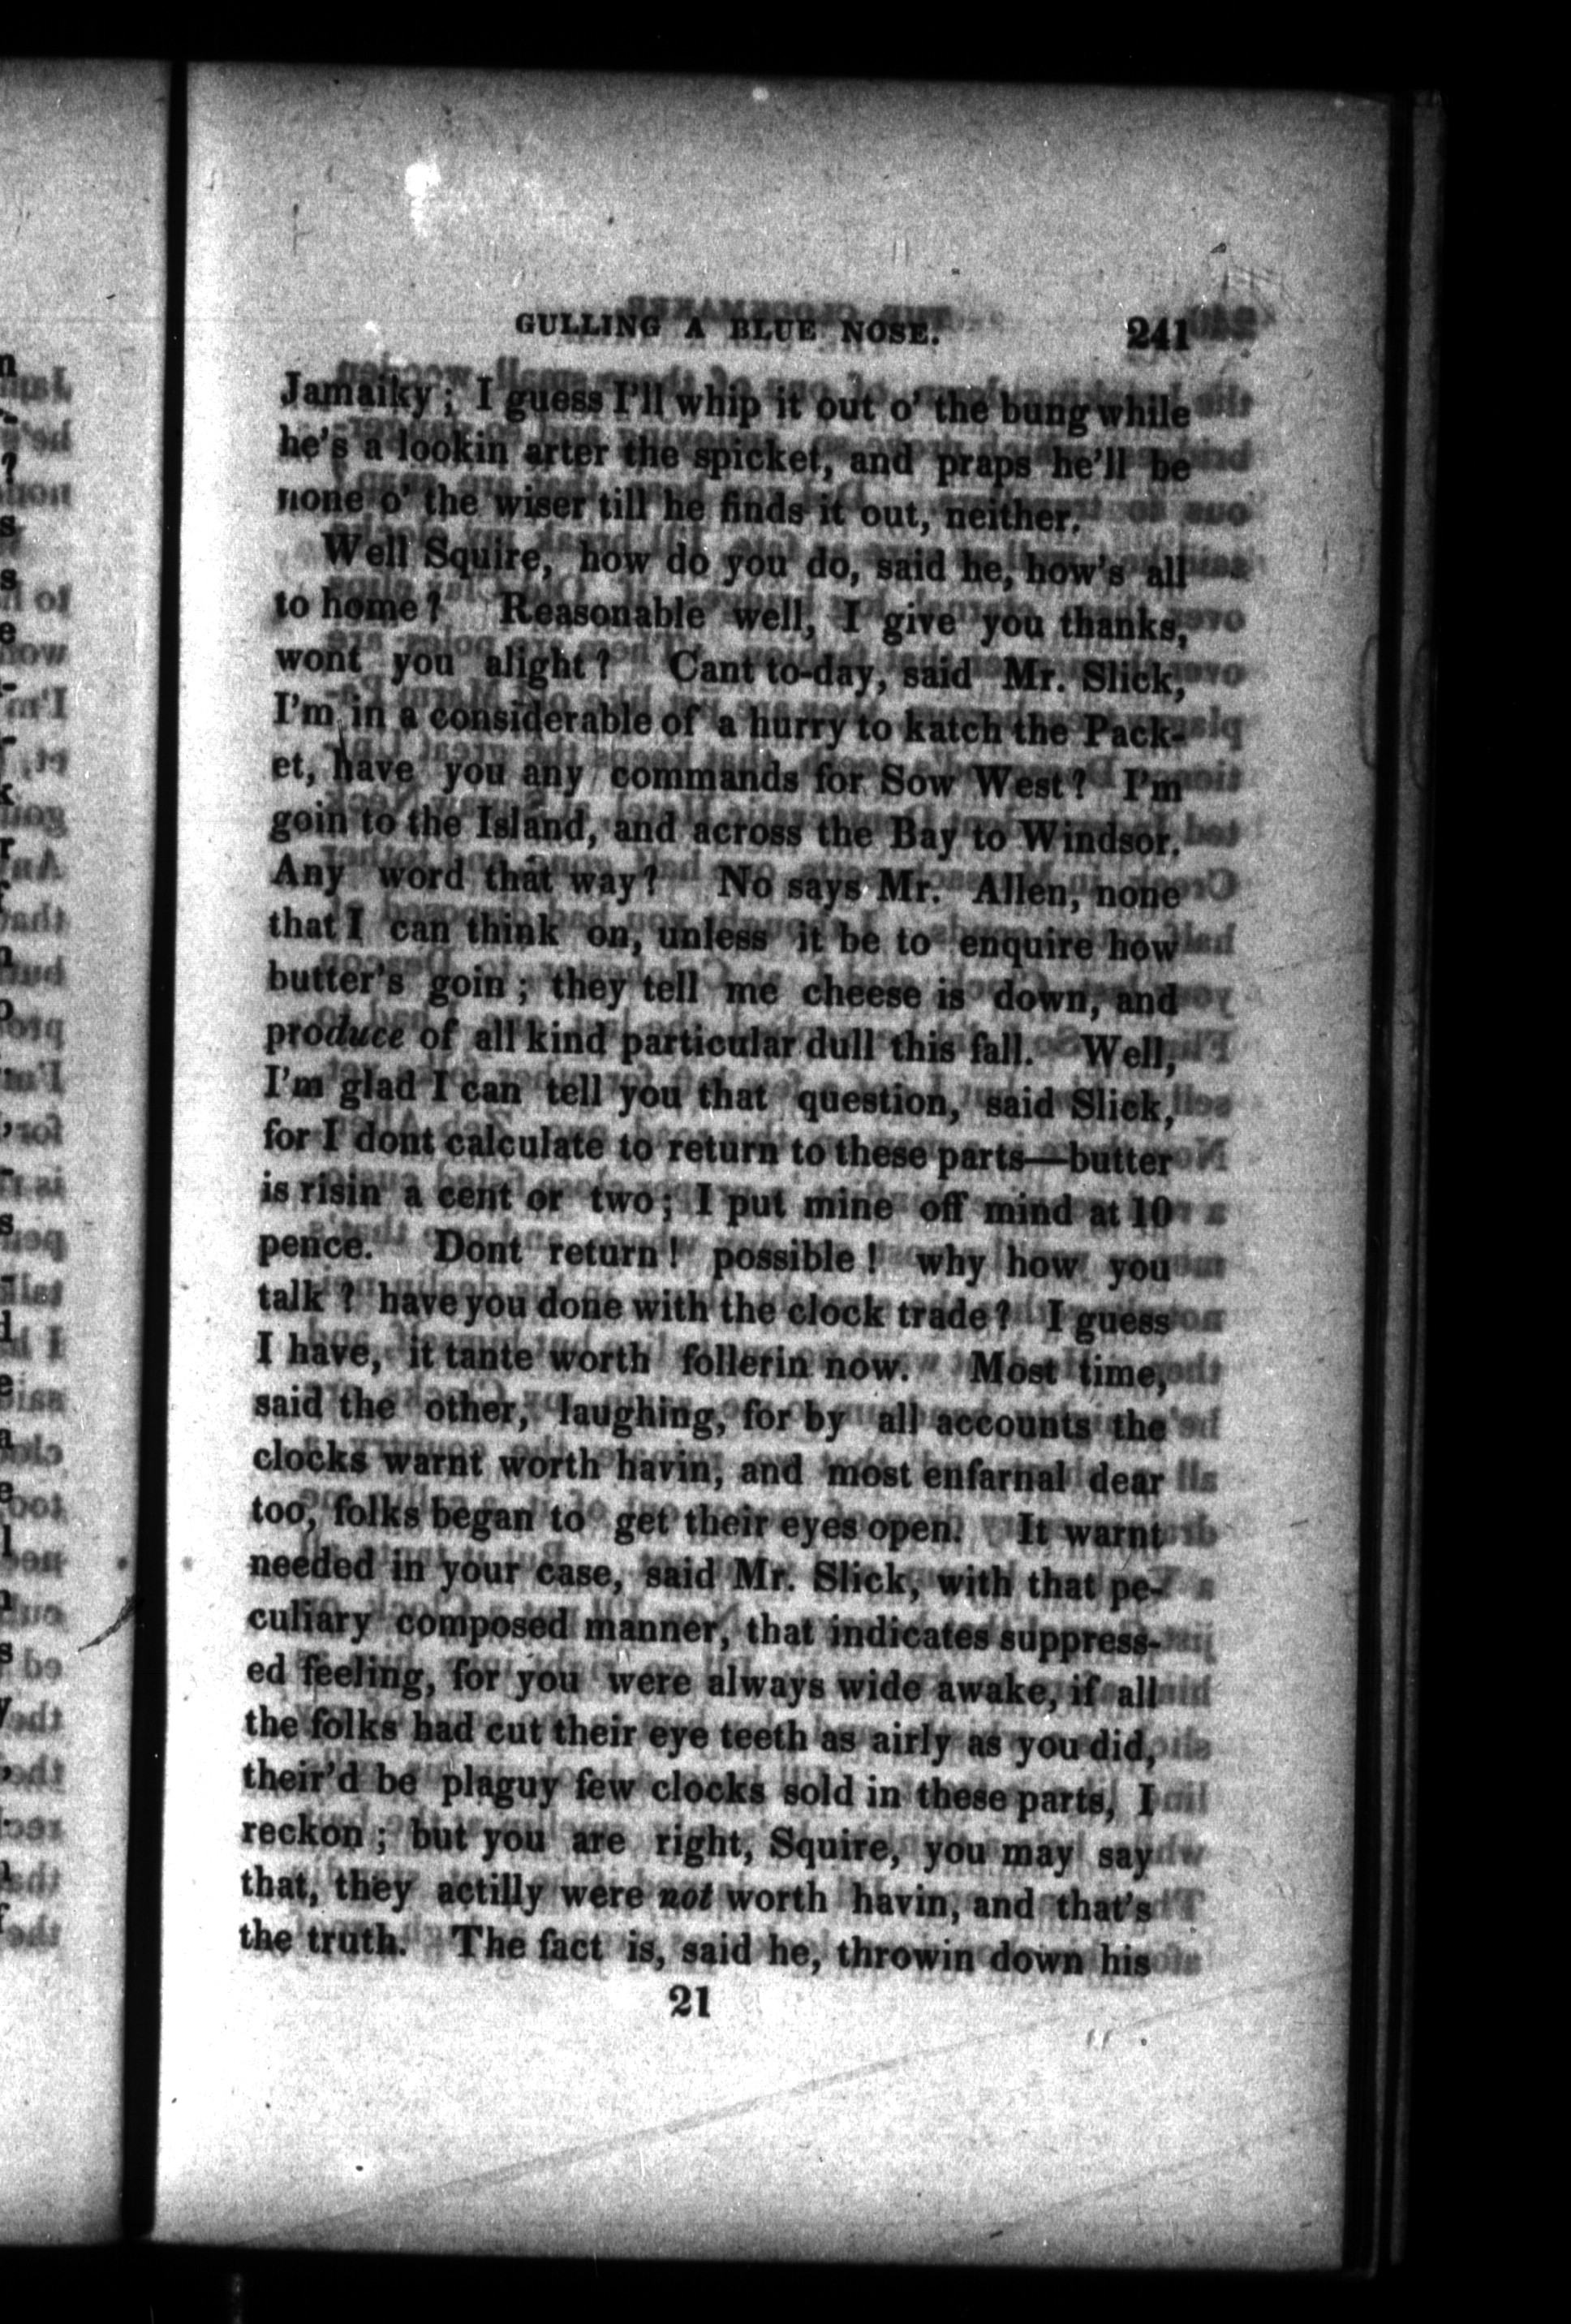 GULLING A BLUE NOSE. 241
Jamaiky; I guess I'll whip it out o' the bung while
he's a lookin arter the spicket, and praps he'll be
none o' the wiser till he finds it out, neither.
Well Squire, how do you do, said he, how's all
to home? Reasonable well, I give you thanks,
wont you alight? Cant to-day, said Mr. Slick,
I'm in a considerable of a hurry to katch the Pack-
et, have you any commands for Sow West? I'm
goin to the Island, and across the Bay to Windsor.
Any word that way? No says Mr. Allen, none
that I can think on, unless it be to enquire how
butter's goin; they tell me cheese is down, and
produce of all kind particular dull this fall. Well,
I'm glad I can tell you that question, said Slick,
for I dont calculate to return to these parts—butter
is risin a cent or two; I put mine off mind at 10
pence. Dont return! possible! why how you
talk? have you done with the clock trade? I guess
I have, it tante worth follerin now. Most time,
said the other, laughing, for by all accounts the
clocks warnt worth havin, and most enfarnal dear
too, folks began to get their eyes open. It warnt
needed in your case, said Mr. Slick, with that pe-
culiary composed manner, that indicates suppress-
ed feeling, for you were always wide awake, if all
the folks had cut their eye teeth as airly as you did,
their'd be plaguy few clocks sold in these parts, I
reckon; but you are right, Squire, you may say
that, they actilly were not worth havin, and that's
the truth. The fact is, said he, throwin down his
21